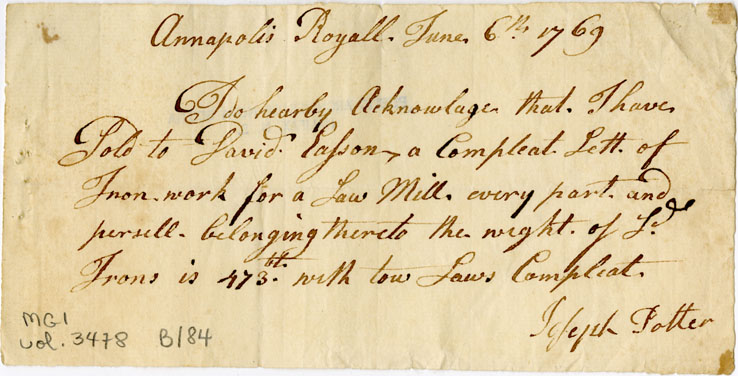 Annapolis Royall. June. 6th 1769
I do hearby Acknowlage that. I have
Sold to David Easson, a Compleat Sett. of
Iron-work for a Saw Mill. every part. and
persell. belonging thereto the wight. of Sd
Irons is 473 lt. with tow Saws Compleat.
Joseph Potter
MG1
vol. 3478 B/84